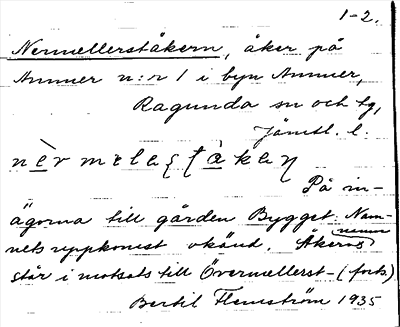 1-2.
Nermellerståkern, åker på
Ammer n:r 1 i byn Ammer,
Ragunda sn och tg,
Jämtl. l.
På in-
ägorna till gården Bygget. Nam-
nets uppkomst okänd. Åkerns namn
står i motsats till Övermellerst- (forts)
Bertil Flemström 1935